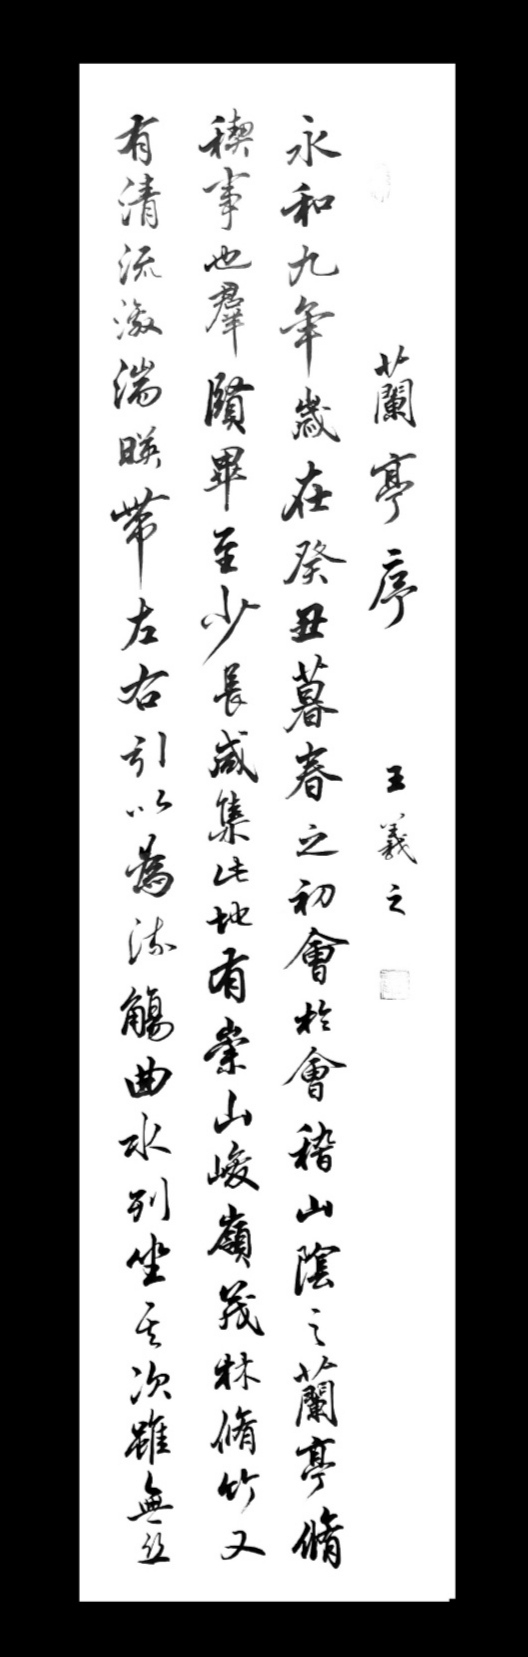 蘭亭序 王羲之
永和九年歲在癸丑暮春之初會於會稽山陰之蘭亭脩
稧事也羣賢畢至少長咸集此地有崇山峻嶺茂林脩竹又
有清流激湍暎帶左右引以為流觴曲水列坐其次雖無丝